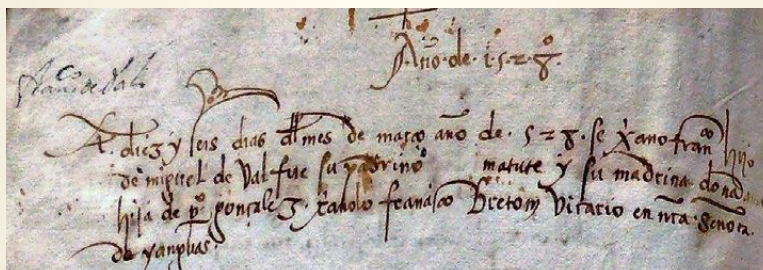 Año de 1528
Franco de Val
A diez y seis dias del mes de março año de 528 se xpano franco hijo
de miguel de Val fue su padrino matute y su madrina doña
hija de po gonçalez xpanolo francisco Breton Vicario en nra senora
de yanguas